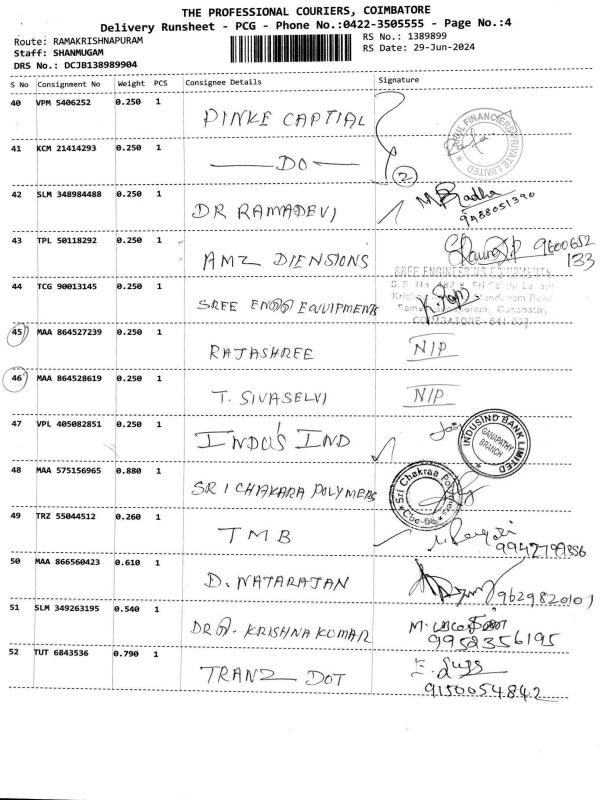 THE PROFESSIONAL COURIERS, COIMBATORE
Delivery Runsheet - PCG - Phone No.:0422-3505555 - Page No.:4
Route: RAMAKRISHNAPURAM
Staff: SHANMUGAM
DRS No.: DCJB138989904
RS No.: 1389899
RS Date: 29-Jun-2024
S No Consignment No Weight PCS Consignee Details Signature
40 VPM 5406252 0.250 1 PINKE CAPTIAL
41 KCM 21414293 0.250 1 DO
2
42 SLM 348984488 0.250 1 DR RAMADEVI M. Radha
9488051390
43 TPL 50118292 0.250 1 AMZ DIENSIONS 9600652
133
SREE ENGINEERING EQUIPMENTS
44 TCG 90013145 0.250 1 SREE ENGG EQUIPMENTS
COIMBATORE-641 037.
45 MAA 864527239 0.250 1 RAJASHREE NIP
46 MAA 864528619 0.250 1 T. SIVASELVI NIP
47 VPL 405082851 0.250 1 INDUS IND
INDUSIND BANK LIMITED
GANAPATHY
BRANCH
48 MAA 575156965 0.880 1 SRI CHAKARA POLYMERS
Sri Chakraa Polymers
49 TRZ 55044512 0.260 1 TMB
9942799886
50 MAA 866560423 0.610 1 D. NATARAJAN 9629820101
51 SLM 349263195 0.540 1 DR. KRISHNA KUMAR
9952356195
52 TUT 6843536 0.790 1 TRANZ DOT
9150054842